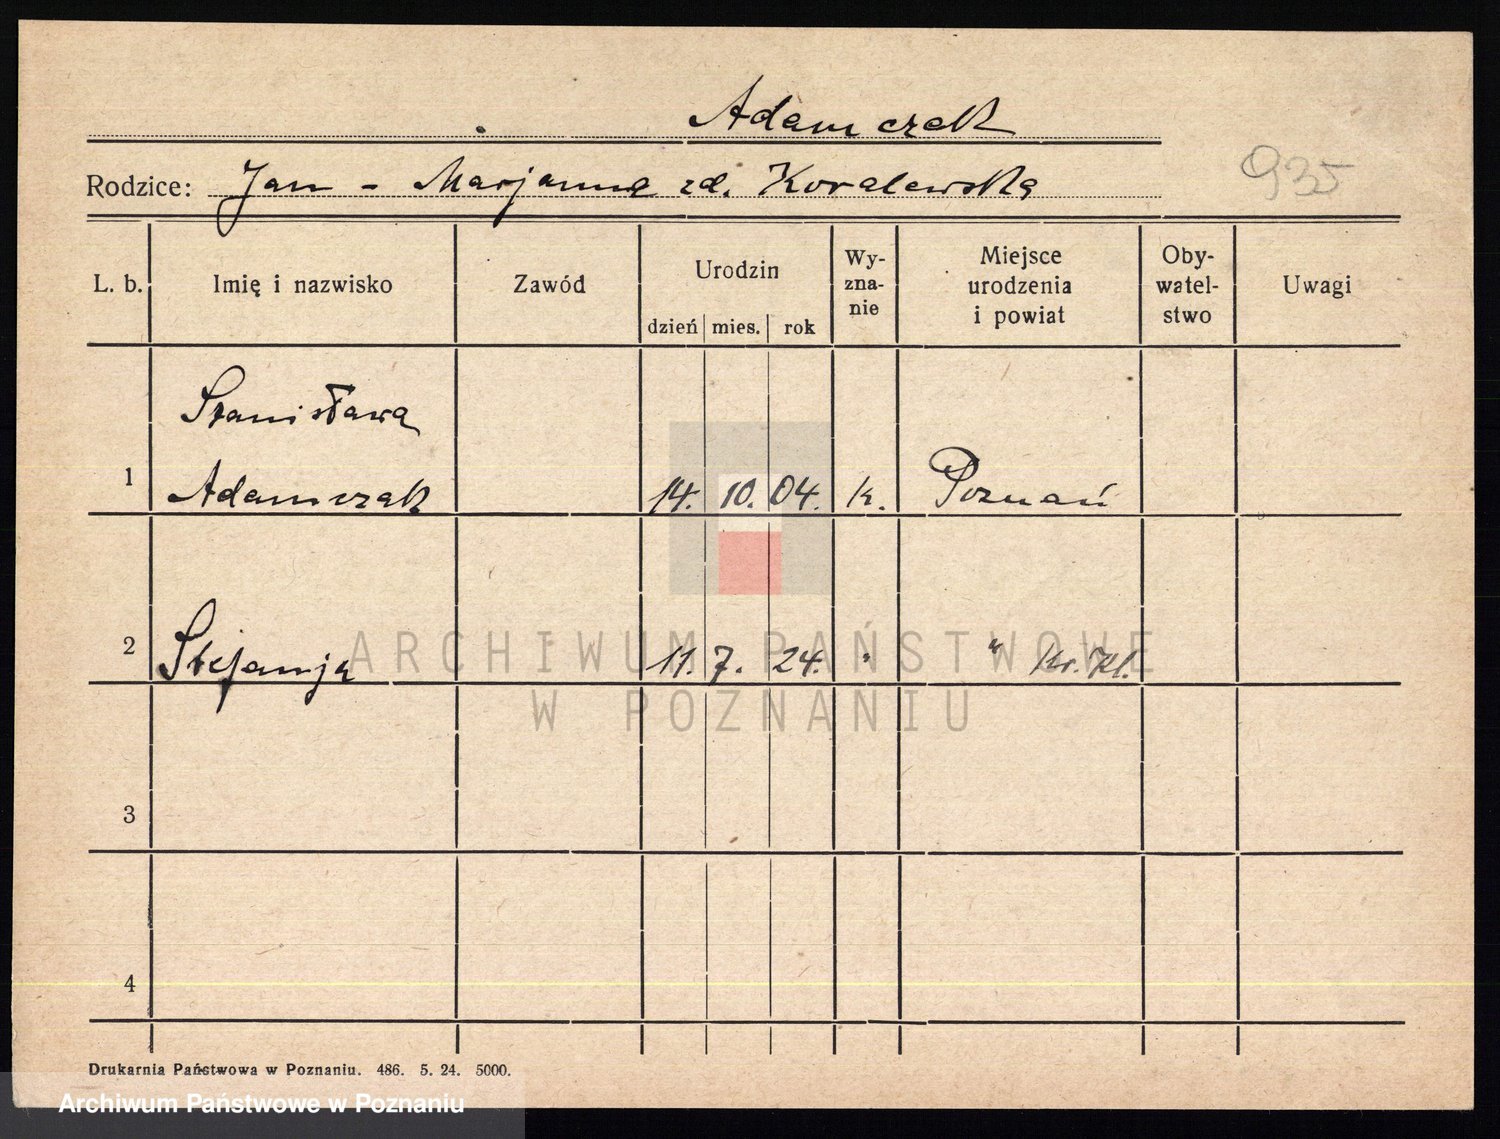 Adamczak
Rodzice: Jan - Marjanna zd. Kovalewska
935
L. b.
Imię i nazwisko
Zawód
Urodzin
dzień mies. rok
Wy-
zna-
nie
Miejsce
urodzenia
i powiat
Oby-
watel-
stwo
Uwagi
Stanisława
1 Adamczak 14. 10. 04. k. Poznań
2 Stefanja 11. 7. 24. " " Kr. Kl.
ARCHIWUM PAŃSTWOWE
W POZNANIU
3
4
Drukarnia Państwowa w Poznaniu. 486. 5. 24. 5000.
Archiwum Państwowe w Poznaniu